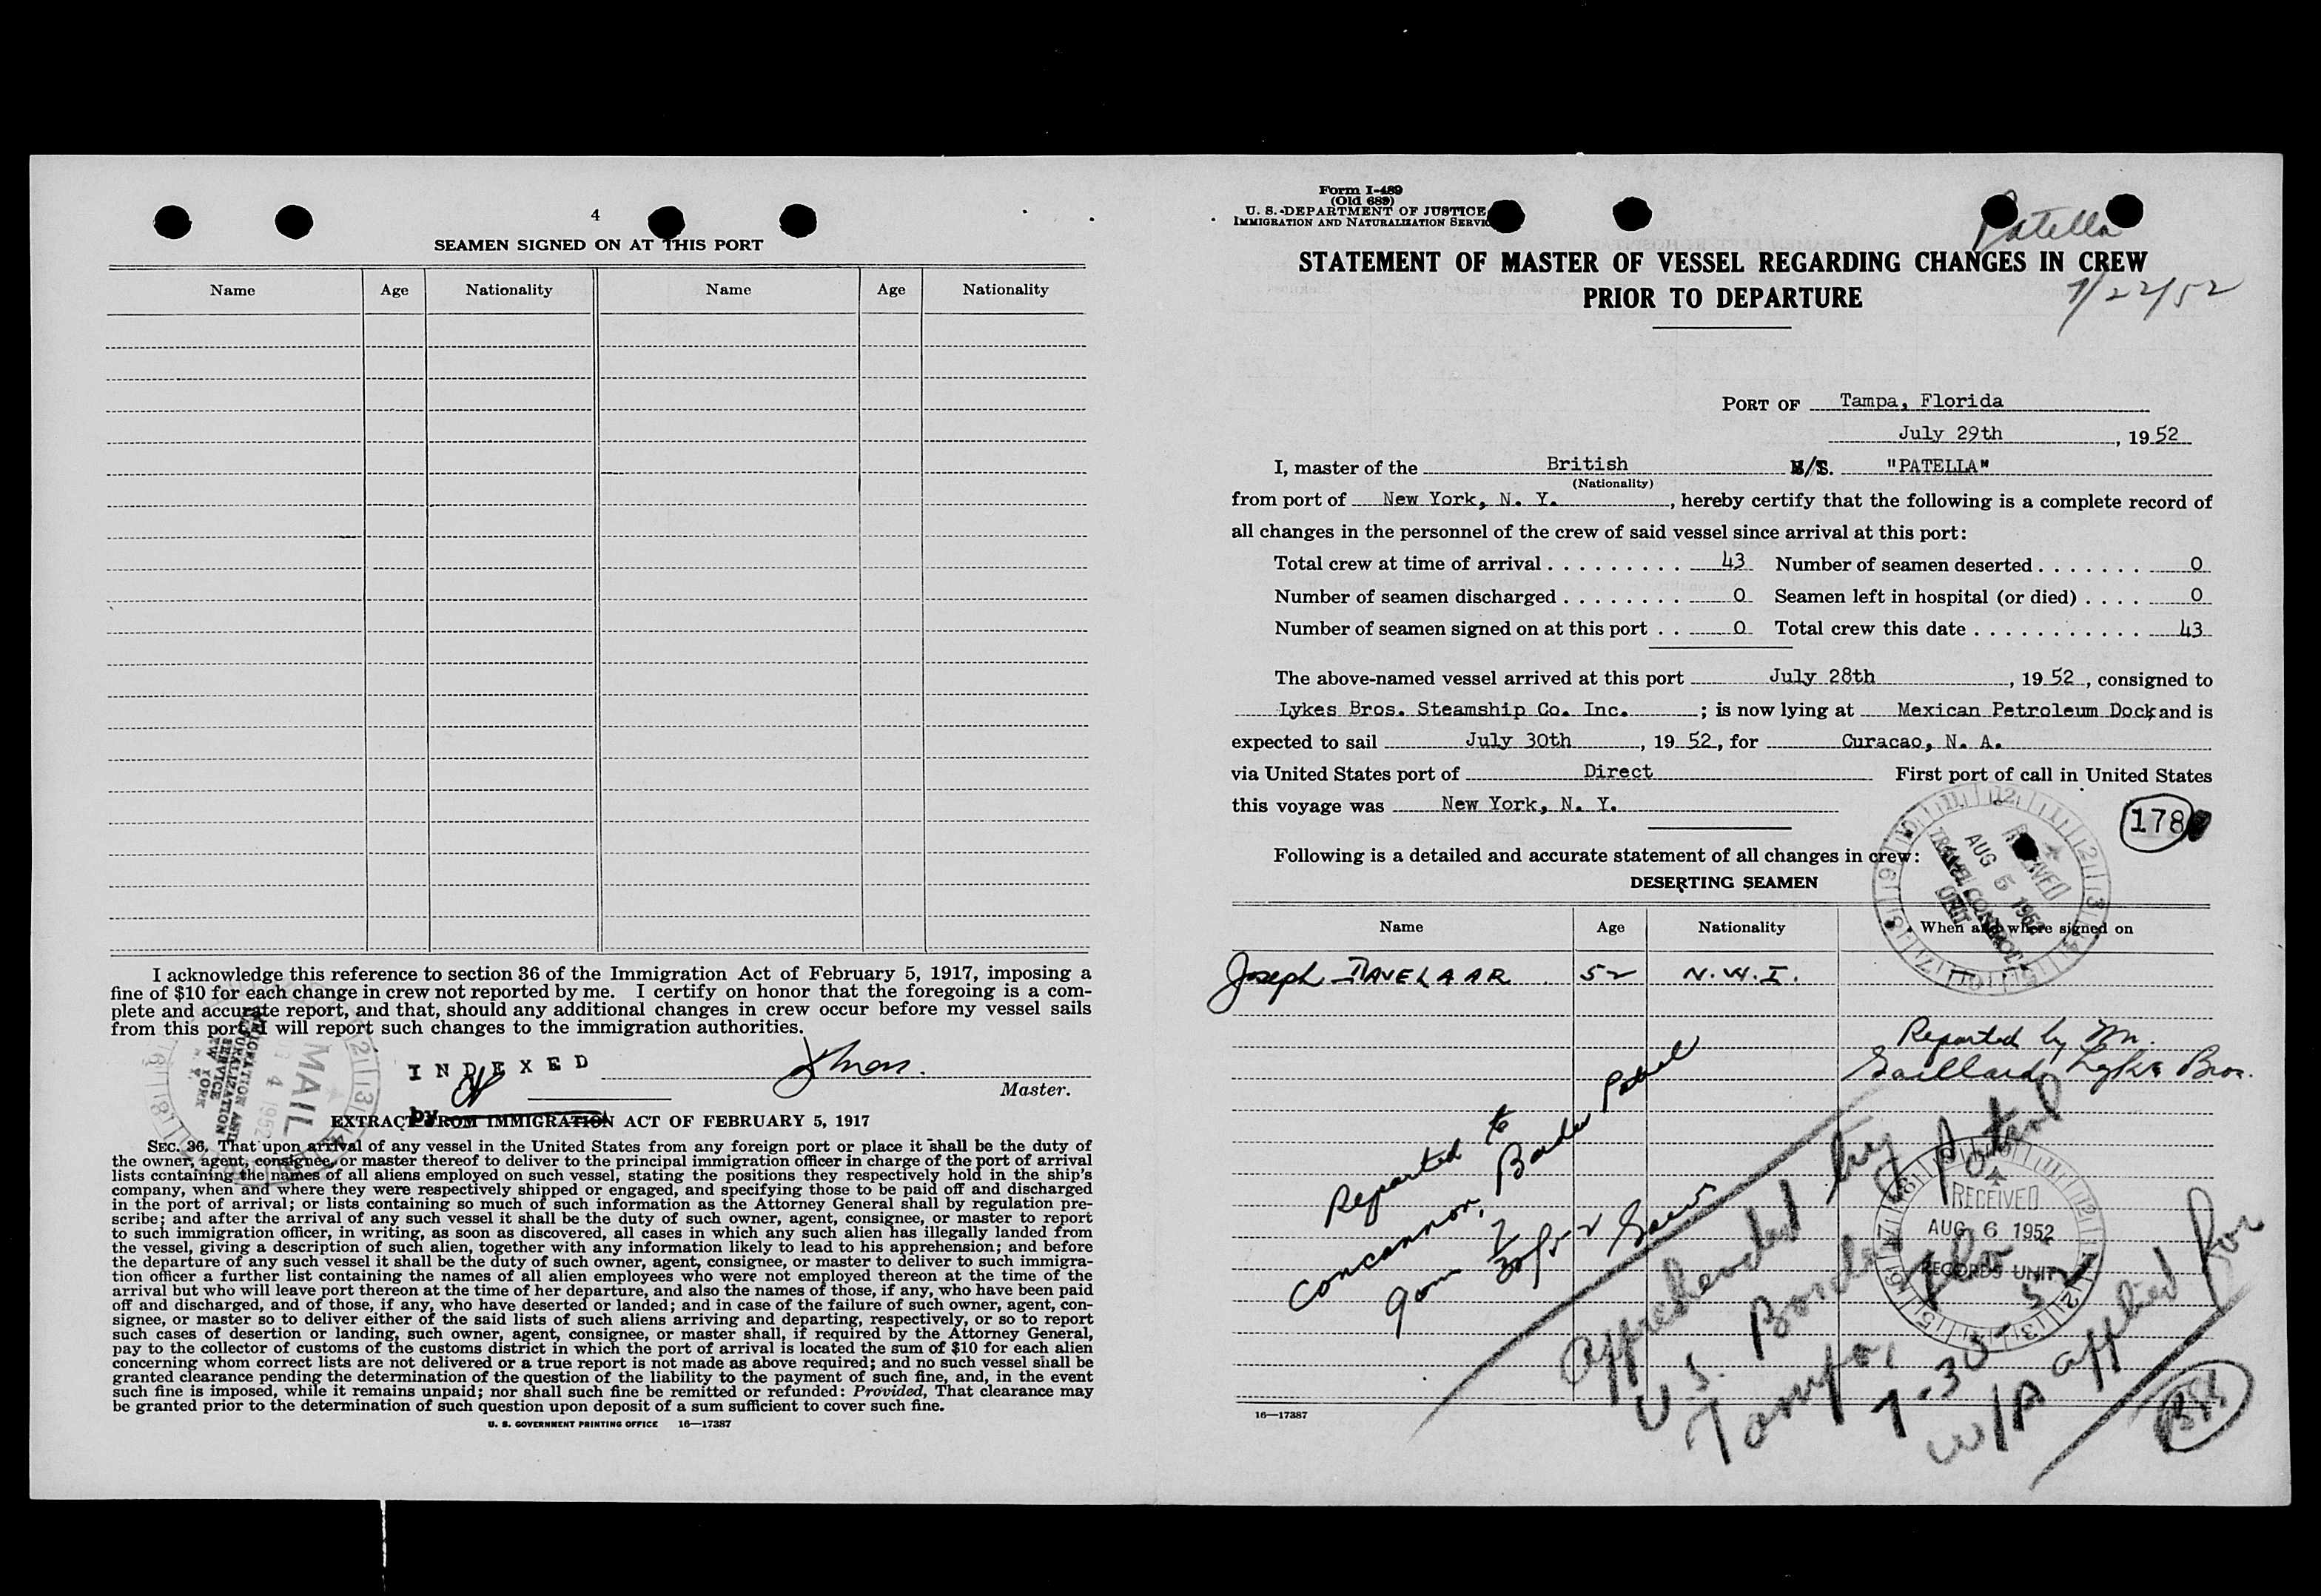 4
SEAMEN SIGNED ON AT THIS PORT
Name Age Nationality Name Age Nationality
I acknowledge this reference to section 36 of the Immigration Act of February 5, 1917, imposing a
fine of $10 for each change in crew not reported by me. I certify on honor that the foregoing is a com-
plete and accurate report, and that, should any additional changes in crew occur before my vessel sails
from this port, I will report such changes to the immigration authorities.
MAIL
4 1952
INDEXED
Master.
by
EXTRACT FROM IMMIGRATION ACT OF FEBRUARY 5, 1917
SEC. 36. That upon arrival of any vessel in the United States from any foreign port or place it shall be the duty of
the owner, agent, consignee, or master thereof to deliver to the principal immigration officer in charge of the port of arrival
lists containing the names of all aliens employed on such vessel, stating the positions they respectively hold in the ship's
company, when and where they were respectively shipped or engaged, and specifying those to be paid off and discharged
in the port of arrival; or lists containing so much of such information as the Attorney General shall by regulation pre-
scribe; and after the arrival of any such vessel it shall be the duty of such owner, agent, consignee, or master to report
to such immigration officer, in writing, as soon as discovered, all cases in which any such alien has illegally landed from
the vessel, giving a description of such alien, together with any information likely to lead to his apprehension; and before
the departure of any such vessel it shall be the duty of such owner, agent, consignee, or master to deliver to such immigra-
tion officer a further list containing the names of all alien employees who were not employed thereon at the time of the
arrival but who will leave port thereon at the time of her departure, and also the names of those, if any, who have been paid
off and discharged, and of those, if any, who have deserted or landed; and in case of the failure of such owner, agent, con-
signee, or master so to deliver either of the said lists of such aliens arriving and departing, respectively, or so to report
such cases of desertion or landing, such owner, agent, consignee, or master shall, if required by the Attorney General,
pay to the collector of customs of the customs district in which the port of arrival is located the sum of $10 for each alien
concerning whom correct lists are not delivered or a true report is not made as above required; and no such vessel shall be
granted clearance pending the determination of the question of the liability to the payment of such fine, and, in the event
such fine is imposed, while it remains unpaid; nor shall such fine be remitted or refunded: Provided, That clearance may
be granted prior to the determination of such question upon deposit of a sum sufficient to cover such fine.
U. S. GOVERNMENT PRINTING OFFICE 16—17387
Form I-489
(Old 689)
U. S. DEPARTMENT OF JUSTICE
IMMIGRATION AND NATURALIZATION SERVICE
Patella
7/22/52
STATEMENT OF MASTER OF VESSEL REGARDING CHANGES IN CREW
PRIOR TO DEPARTURE
PORT OF Tampa, Florida
July 29th, 19 52
I, master of the British M/S. "PATELLA"
(Nationality)
from port of New York, N. Y., hereby certify that the following is a complete record of
all changes in the personnel of the crew of said vessel since arrival at this port:
Total crew at time of arrival . . . . . . . . . 43 Number of seamen deserted . . . . . . . 0
Number of seamen discharged . . . . . . . . 0 Seamen left in hospital (or died) . . . . 0
Number of seamen signed on at this port . . 0 Total crew this date . . . . . . . . . . . . 43
The above-named vessel arrived at this port July 28th, 19 52, consigned to
Lykes Bros. Steamship Co. Inc. ; is now lying at Mexican Petroleum Dock, and is
expected to sail July 30th, 19 52, for Curacao, N. A.
via United States port of Direct First port of call in United States
this voyage was New York, N. Y.
178
RECEIVED
AUG 5 1952
TRAVEL CONTROL
UNIT
Following is a detailed and accurate statement of all changes in crew:
DESERTING SEAMEN
Name Age Nationality When and where signed on
Joseph DAVELAAR 52 N.W.I.
Reported by Mr.
Gaillard, Lykes Bros.
Reported to
Concannon, Border Patrol
7/30/52
apprehended by
U.S. Border Patrol
Tampa, Fla
7-30-52
w/A applied for
RECEIVED
AUG 6 1952
RECORDS UNIT
16—17387